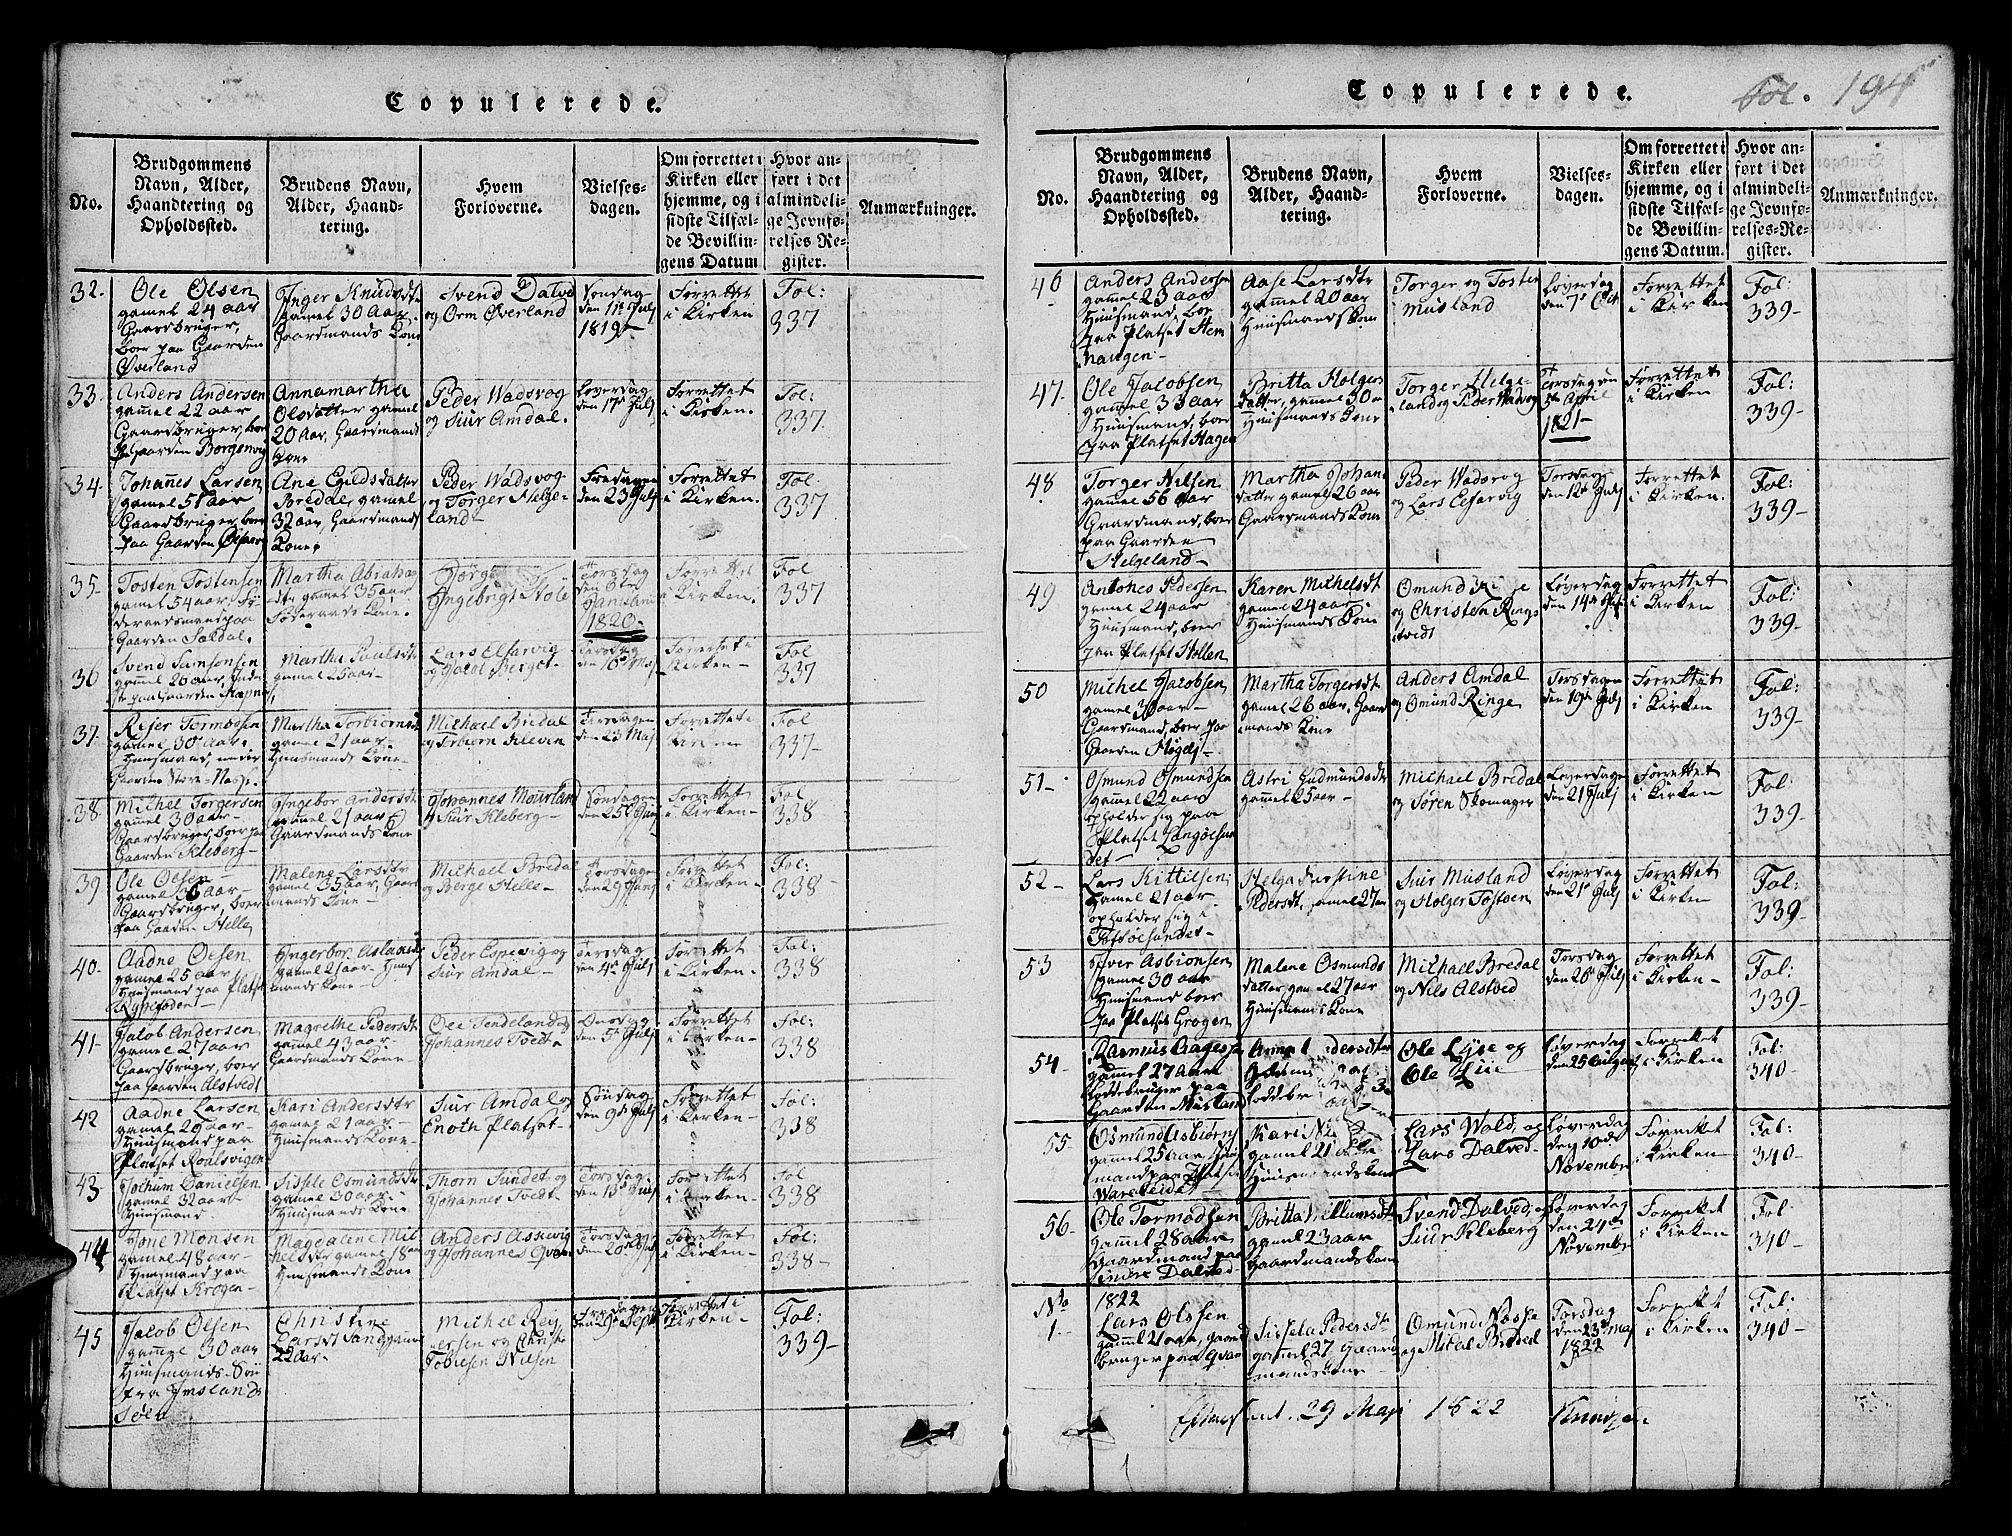 Copulerede.
No.
Brudgommens
Navn, Alder,
Haandtering og
Opholdssted.
Brudens Navn,
Alder, Haand-
tering.
Hvem
Forloverne.
Vielses-
dagen.
Om forrettet i
Kirken eller
hjemme, og i
sidste Tilfæl-
de Bevillin-
gens Datum
Hvor an-
ført i det
almindeli-
ge Jevnfø-
relses-Re-
gister.
Anmærkninger.
32.
Ole Olsen
gamel 24 aar
Gaardbruger,
boer paa Gaarden
Øverland
Inger Knudsdt.
gamel 30 Aar
Gaardmands Kone
Svend Dalve
og Orm Øverland
Søndag
den 11te Julj
1819
Forrettet
i Kirken
Fol:
337
33.
Anders Andersen
gammel 22 aar
Gaardbruger, boer
Gaarden Borgenvig
Annamartha
Olsdatter gamel
20 Aar, Gaardmands
Kone
Peder Wadsvog
og Siur Amdal.
Løverdag
den 17de Julj
Forrettet
i Kirken.
Fol:
337.
34.
Johannes Larsen
gamel 51 aar
Gaardbruger, boer
paa Gaarden
Ane Egildsdatter
Bredal, gamel
32 aar, Gaardmands
Kone
Peder Wadsvog
og Torger Helge-
land
Fredagen
den 23 Julj
Forrettet
i Kirken.
Fol:
337
35.
Tosten Tostensen
gamel 54 aar, Fø-
deraadsmand paa
Gaarden Søldal.
Martha Abraha
dtr gamel 35 aar
Føderaads Kone
Jørge
Ingebrigt Støle
Torsdag
den 6te
1820.
Forrettet
i Kirken.
Fol
337
36
Svend Samsonsen
gamel 26 aar,
paa Gaarden
Martha Paulsdt
gamel 25 aar
Lars Elfarvig
og Jacob Berget
Torsdag
den 16de Maj
Forrettet i
Kirken
Fol
337
37.
Rejer Tormodsen
gamel 30 aar.
Huusmand, under
Gaarden Store-Nasse.
Martha Torbiornsd
gamel 21 aar.
Huusmands Kone
Michael Bredal
og Torbiorn Kleven
Tirsdagen
den 23 Maj
Forrettet i
Kirken
Fol
337-
38.
Michel Torgersen
gamel 30 aar
Gaardbruger, boer paa
Gaarden Kleberg
Ingebor Andersdt
gamel 21 aar
Gaardmands Kone
Johannes Mourland
og Siur Kleberg
Søndagen
den 25de Junj
Forrettet
i Kirken
Fol
338
39
Ole Olsen
gamel 36 aar
Gaardbruger, boer
paa Gaarden Helle
Malene Larsdtr
gamel 35 aar, Gaard
mands Kone
Michael Bredal
og Berge Helle
Torsdagen
den 29 Junj
Forrettet
i Kirken
Fol:
338-
40.
Aadne Olsen
gamel 25 aar
Huusmand paa Platset
Ingerbor Aslaksdt
gamel 21 aar Huus
mands Kone
Peder Espevig og
Siur Amdal
Tirsdag
den 4de Julj
Forrettet
i Kirken
Fol:
338
41.
Jacob Andersen
gamel 27 aar
Gaardbruger, boer
paa Gaarden Alstvedt
Magrethe Pedersdt
gamel 43 aar
Gaardmands Kone
Ole Tendeland og
Johannes Tvedt
Onsdag
den 5te Julj
Forrettet
i Kirken
Fol:
338
42
Aadne Larsen
gamel 29 aar
Huusmand paa
Platset Roalsvigen
Kari Andersdtr
gamel 21 aar
Huusmands Kone
Siur Amdal og
Enoth Platset
Søndag
den 9de Julj
Forrettet
i Kirken
Fol:
338
43
Jochum Danielsen
gamel 32 aar
Huusmand
Sissele Osmundsdt
gamel 30 aar
Huusmands Kone
Thorn Sundet og
Johannes Tvedt
Torsdag
den 13de Julj
Forrettet
i Kirken
Fol
338
44
Jone Monsen
gamel 48 aar
Huusmand paa
Platset Krogen
Magdalene Mic
helsdtr gamel 18 aar
Huusmands Kone
Anders Assevig
og Johannes Qvame
Torsdag
den 20de Julj
Forrettet
i Kirken
Fol:
338-
45
Jacob Olsen
gamel 30 aar
Huusmands-Søn
fra Imsland
Søen
Christine
Larsdt Sandgaard
22 aar
Michel Rej
ersen og Christe
Tobiesen Nilsen
Fredagen
den 29de Sept
Forrettet i
Kirken
Fol:
339-
Copulerede.
Fol. 194
No.
Brudgommens
Navn, Alder,
Haandtering og
Opholdssted.
Brudens Navn,
Alder, Haand-
tering.
Hvem
Forloverne.
Vielses-
dagen.
Om forrettet i
Kirken eller
hjemme, og i
sidste Tilfæl-
de Bevillin-
gens Datum.
Hvor an-
ført i det
almindeli-
ge Jevnfø-
relses-Re-
gister.
Anmærkninger.
46
Anders Andersen
gamel 23 aar
Huusmand, boer
paa Platset Hem
Aase Larsdtr
gamel 20 aar
Huusmands Kone
Torger og Tosten
Musland
Løverdag
den 7de Oct
Forrettet
i Kirken
Fol:
339-
47.
Ole Jacobsen
gamel 33 aar
Huusmand, boer
paa Platset Hagen
Britta Holger
datter, gamel 30 a
Huusmands Kone
Torger Helge-
land og Peder Wadsvog
Torsdagen
5te April
1821-
Forrettet
i Kirken
Fol:
339-
48
Torger Nilsen
gamel 56 aar
Gaardmand, boer
paa Gaarden
Helgeland
Martha Johan
datter gamel 26 aar
Gaardmands Kone
Peder Wadsvog
og Lars Elfarvig
Torsdag
den 12te Julj
Forrettet
i Kirken.
Fol:
339-
49
Antones Pedersen
gamel 24 aar
Huusmand, boer
paa Platset Hollen
Karen Michelsdt
gamel 24 aar
Huusmands Kone
Omund Ringe
og Christen Rings
tvedt
Løverdag
den 14de Julj
Forrettet
i Kirken
Fol:
339-
50
Michel Jacobsen
gamel 30 aar
Gaardmand, boer paa
Gaarden
Martha Torgersdt
gamel 26 aar, Gaard
mands Kone
Anders Amdal
og Omund Ringe
Torsdagen
den 19de Julj
Forrettet
i Kirken
Fol:
339-
51-
Osmund Osmundsen
gamel 22 aar
opholder sig paa
Platset Langøesun
det
Astri Gudmundsdtr
gammel 25 aar
Michael Bredal
og Søren Skomager
Løverdagen
den 21 Julj
Forrettet
i Kirken
Fol:
339-
52-
Lars Kittilsen
Gamel 21 aar
opholder sig i
Toftøesundet
Helga Kirstine
Pedersdt. gamel 27 aa
Siur Musland
og Holger Tostven
Løverdag
den 21de Julj
Forrettet
i Kirken
Fol:
339-
53
Iver Asbionsen
gamel 30 aar
Huusmand boer
paa Platset Grogen
Malene Osmunds
datter, gamel 27 aar
Huusmands Kone
Michael Bredal
og Nils Alstved
Torsdag
den 26de Julj
Forrettet
i Kirken
Fol:
339-
54-
Rasmus Aagesen
gammel 27 Aar
Lodsbruger paa
Gaarden Musland
Anna Pedersdtr
Ole Lyse og
Ole Lie
Løverdag
den 25 August
Forrettet
i Kirken
Fol:
340-
55
Osmund Asbiørns
gamel 25 Aar, Huus
mand paa Platset
Kari
gamel 21
Huusmandskone
Lars Wold, og
Lars Dalved
Løverdag
den 10de
Novembr
Forrettet
i Kirken
Fol:
340-
56-
Ole Tormodsen
gammel 28 aar
Gaardmand paa
indre Dalved
Britta Willumsdt
gamel 23 aar
Gaardmandskone
Svend Dalved, og
Siur Kleberg
Løverdag
den 24de
Novembr
Forrettet
i Kirken
Fol
340-
1822
No
1-
Lars Olssen
gaml 21 aar, gaard
bruger paa Qvam
Sissela Pedersdtr
gammel 27 Gaard
mandskone
Omund Nasse
og Mikal Bredal
Torsdag
den 23de Maj
1822
Forrettet
i Kirken
Fol:
340-
29 Maji 1822